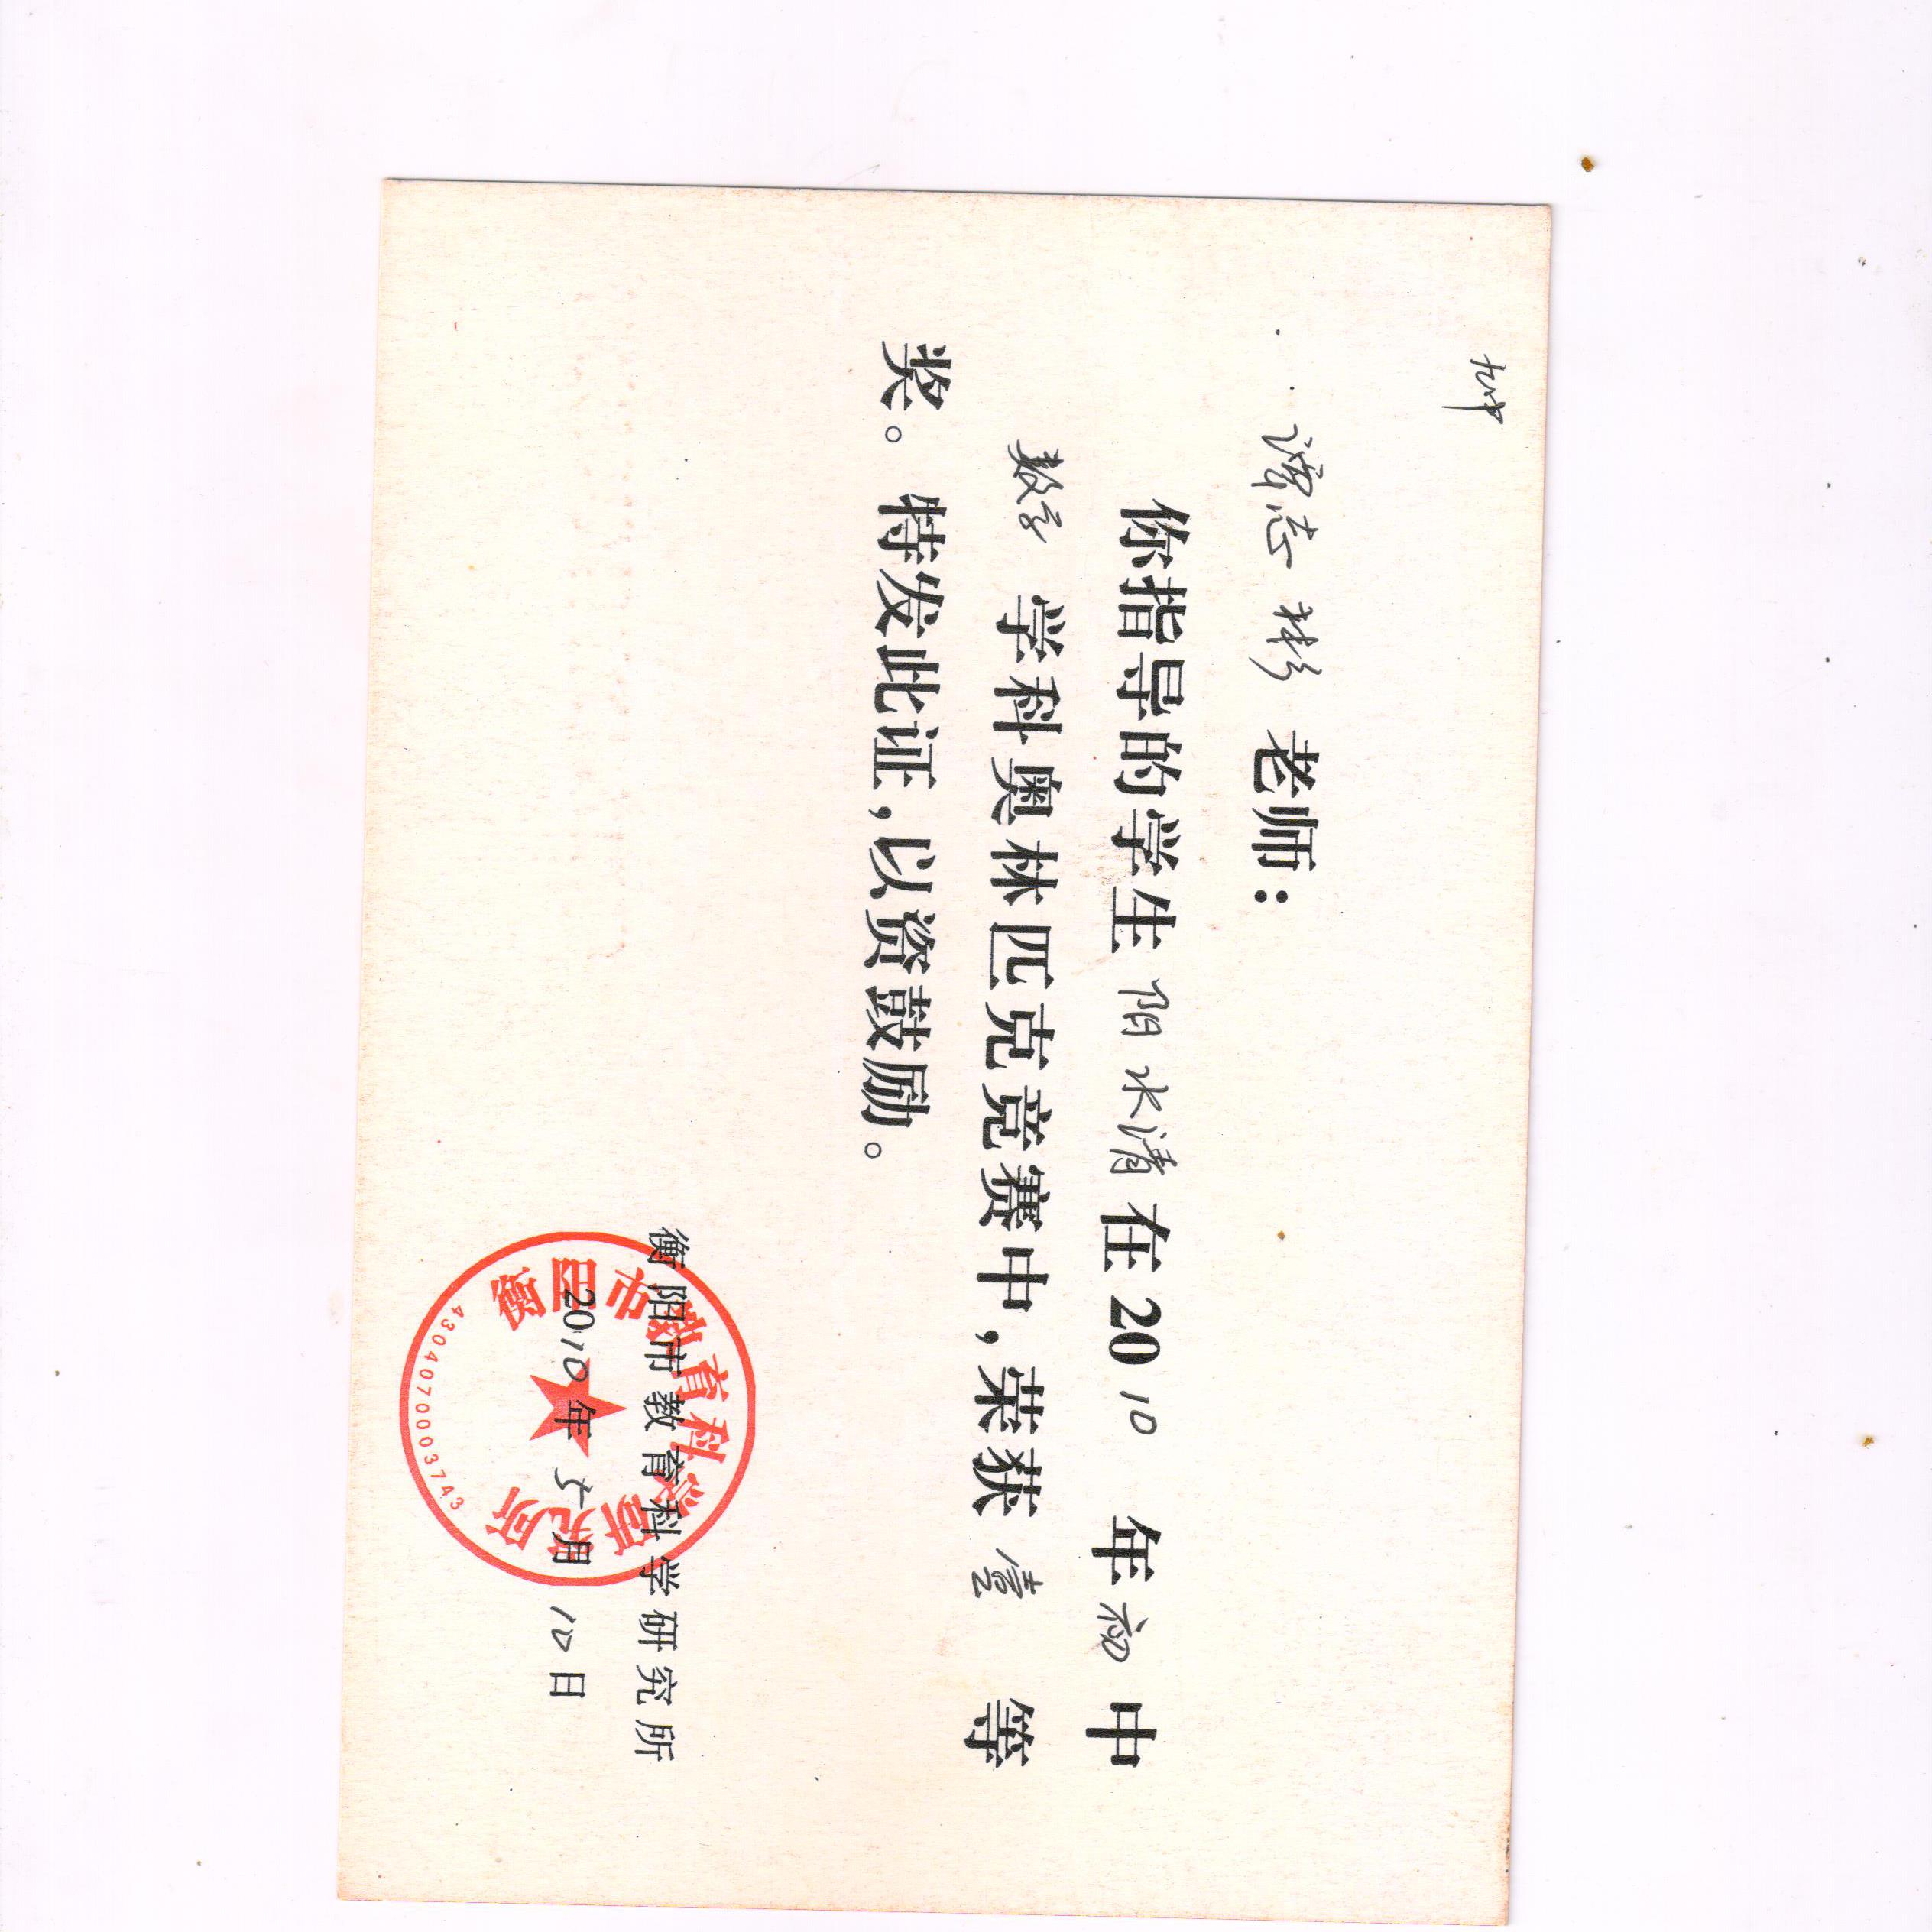 九中
谭志彬 老师:
你指导的学生阳水清在2010年初中
数学 学科奥林匹克竞赛中,荣获 壹 等
奖。特发此证,以资鼓励。
衡阳市教育科学研究所
2010年5月10日
衡阳市教育科学研究所
4304070003743